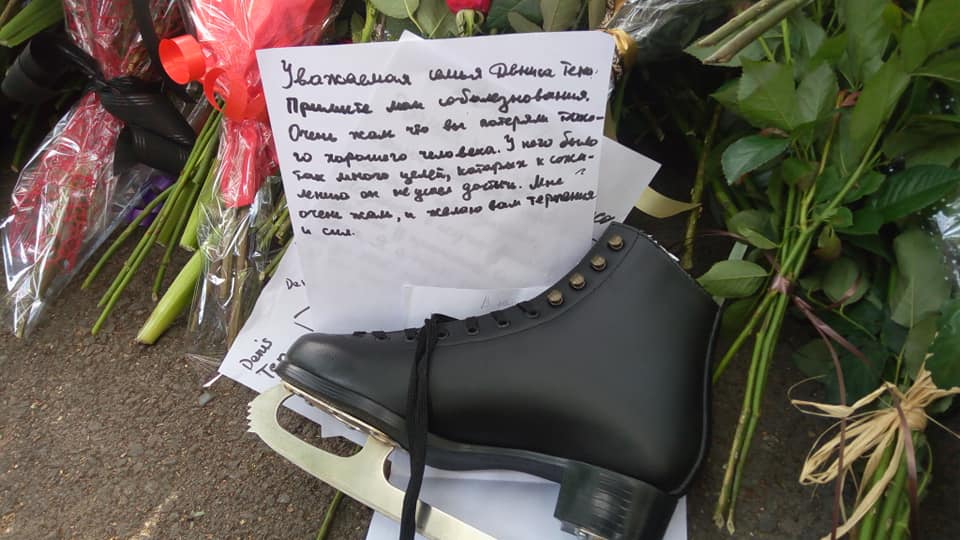 Уважаемая семья Дениса Тена.
Примите мои соболезнования.
Очень жаль что вы потеряли тако-
го хорошего человека. У него было
так много целей, которых к сожа-
лению он не успел достичь. Мне
очень жаль, и желаю вам терпения
и сил.
Den
Denis
Те